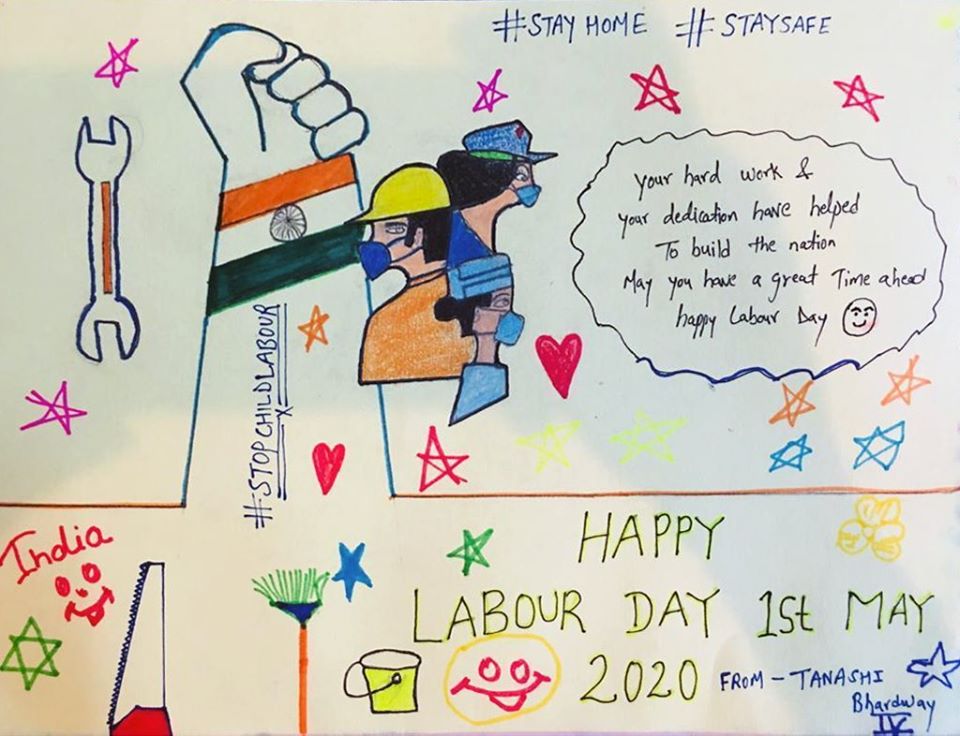 #STAY HOME #STAYSAFE
your hard work &
your dedication have helped
To build the nation
May you have a great Time ahead
happy Labour Day
#STOP CHILD LABOUR
India
HAPPY
LABOUR DAY 1st MAY
2020 FROM - TANASHI
Bhardway
IV